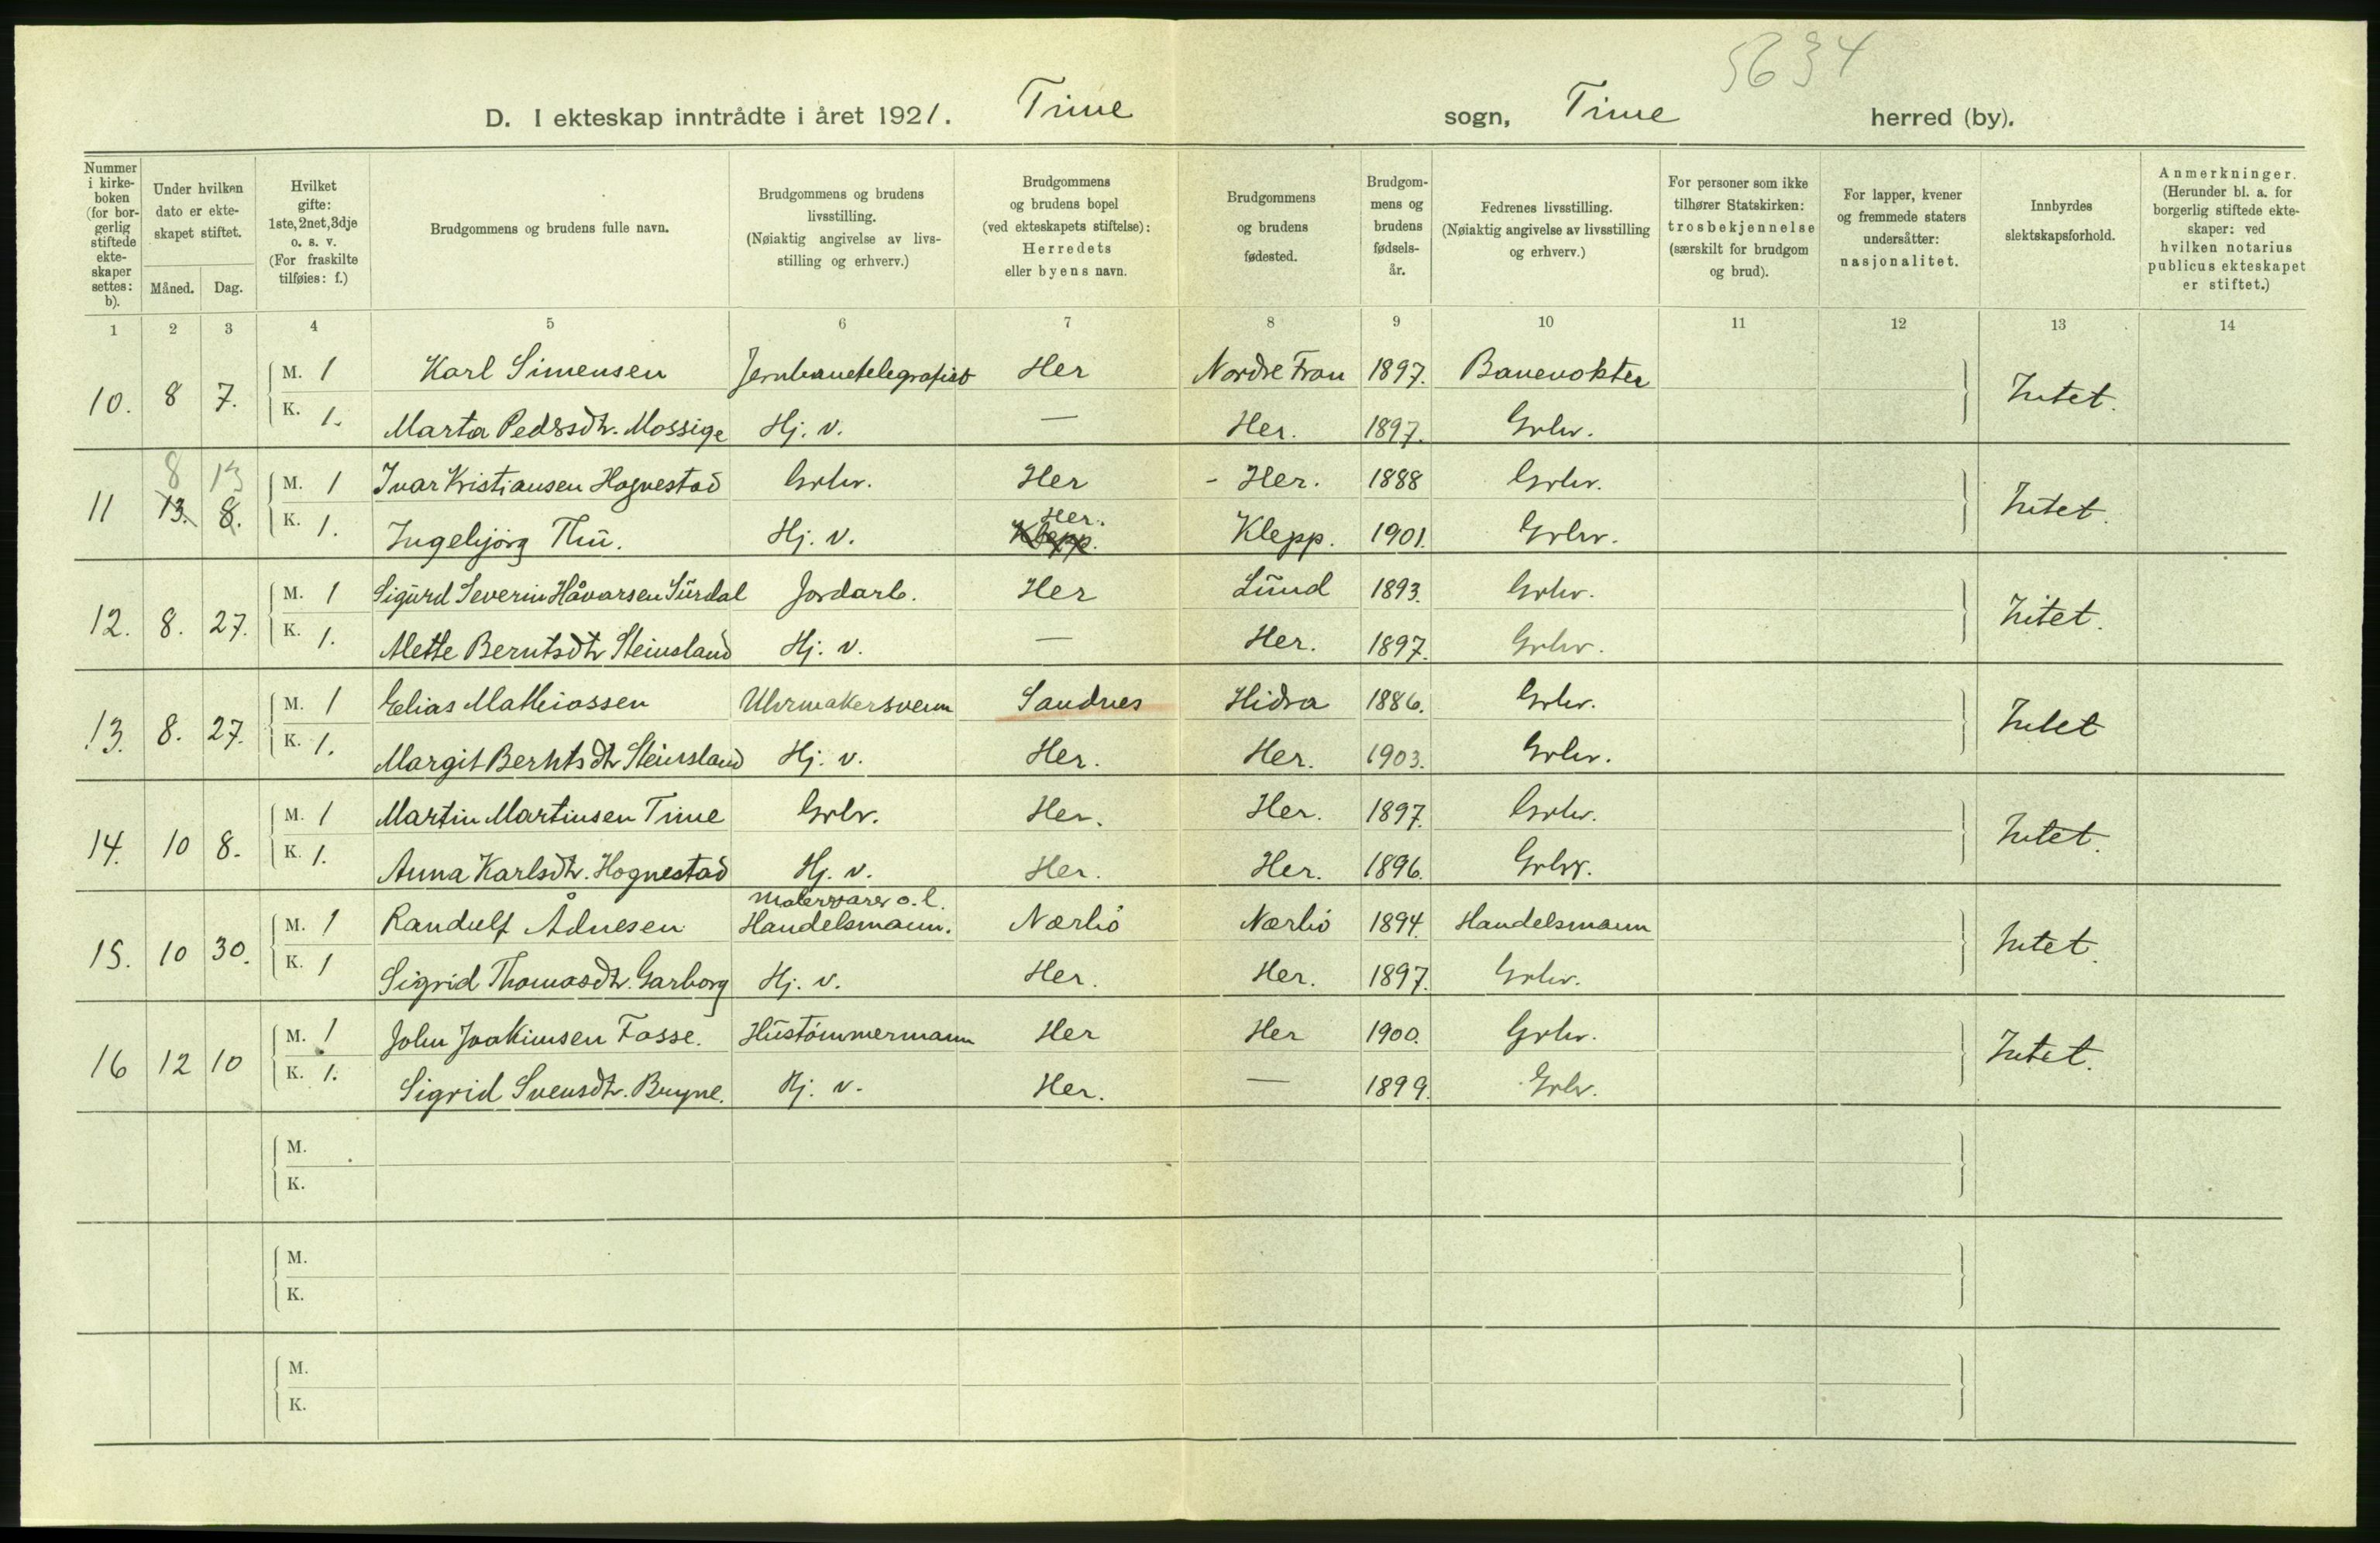 5634
D. I ekteskap inntrådte i året 1921. Time sogn, Time herred (by).
Nummer i kirke-boken (for bor-gerlig stiftede ekte-skaper settes: b).
Under hvilken dato er ekte-skapet stiftet.
Måned. Dag.
Hvilket gifte: 1ste, 2net, 3dje o. s. v. (For fraskilte tilføies: f.)
Brudgommens og brudens fulle navn.
Brudgommens og brudens livsstilling. (Nøiaktig angivelse av livs-stilling og erhverv.)
Brudgommens og brudens bopel (ved ekteskapets stiftelse): Herredets eller byens navn.
Brudgommens og brudens fødested.
Brudgom-mens og brudens fødsels-år.
Fedrenes livsstilling. (Nøiaktig angivelse av livsstilling og erhverv.)
For personer som ikke tilhører Statskirken: trosbekjennelse (særskilt for brudgom og brud).
For lapper, kvener og fremmede staters undersåtter: nasjonalitet.
Innbyrdes slektskapsforhold.
Anmerkninger. (Herunder bl. a. for borgerlig stiftede ekte-skaper: ved hvilken notarius publicus ekteskapet er stiftet.)
1 2 3 4 5 6 7 8 9 10 11 12 13 14
10. 8 7. M. 1 Karl Simensen Jernbanetelegrafist Her Nordre Fron 1897. Banevokter Intet.
K. 1. Marta Pedersdtr. Mossige Hj. v. — Her. 1897. Grbr.
8 13
11 13. 8. M. 1 Ivar Kristiansen Hognestad Grbr. Her - Her. 1888 Grbr. Intet.
Her.
K. 1. Ingebjørg Thu. Hj. v. Klepp. Klepp. 1901. Grbr.
12. 8. 27. M. 1 Sigurd Severin Håvarsen Surdal Jordarb. Her Lund 1893. Grbr. Intet.
K. 1. Mette Berntsdtr Steinsland Hj. v. — Her. 1897. Grbr.
13. 8. 27. M. 1 Elias Mathiassen Uhrmakersvenn Sandnes Hidra 1886. Grbr. Intet
K. 1. Margit Berntsdtr Steinsland Hj. v. Her. Her. 1903. Grbr.
14. 10 8. M. 1 Martin Martinsen Time Grbr. Her. Her. 1897. Grbr. Intet.
K. 1. Anna Karlsdtr. Hognestad Hj. v. Her. Her. 1896. Grbr.
malervarer o. l.
15. 10 30. M. 1 Randulf Ådnesen Handelsmann. Nærbø Nærbø 1894. Handelsmann Intet.
K. 1 Sigrid Thomasdtr. Garborg Hj. v. Her. Her. 1897. Grbr.
16 12 10 M. 1 John Joakimsen Fosse. Hustømmermann Her Her 1900. Grbr. Intet.
K. 1. Sigrid Svensdtr. Bryne. Hj. v. Her. — 1899. Grbr.
M.
K.
M.
K.
M.
K.